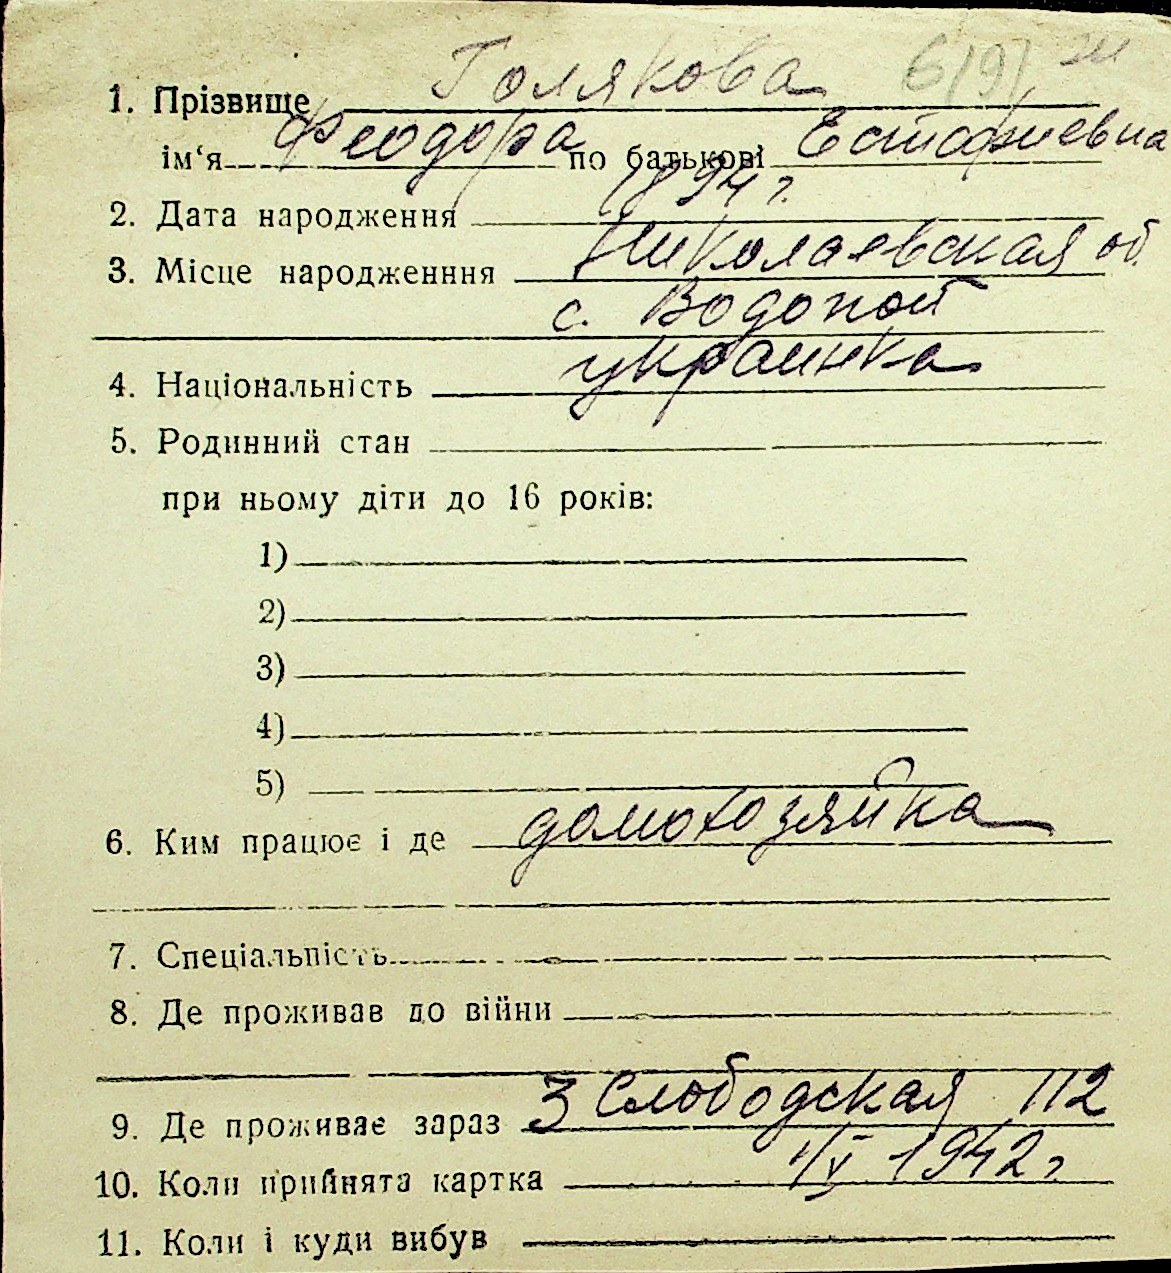 6/91 эн
1. Прізвище Голякова
ім'я Феодора по батькові Естафиевна
2. Дата народження 1894 г.
3. Місце народженння Николаевская об.
с. Водопой
4. Національність украинка
5. Родинний стан
при ньому діти до 16 років:
1)
2)
3)
4)
5)
6. Ким працює і де домохозяйка
7. Спеціальність
8. Де проживав до війни
9. Де проживає зараз 3 Слободская 112
10. Коли прийнята картка 1/V 1942 г.
11. Коли і куди вибув